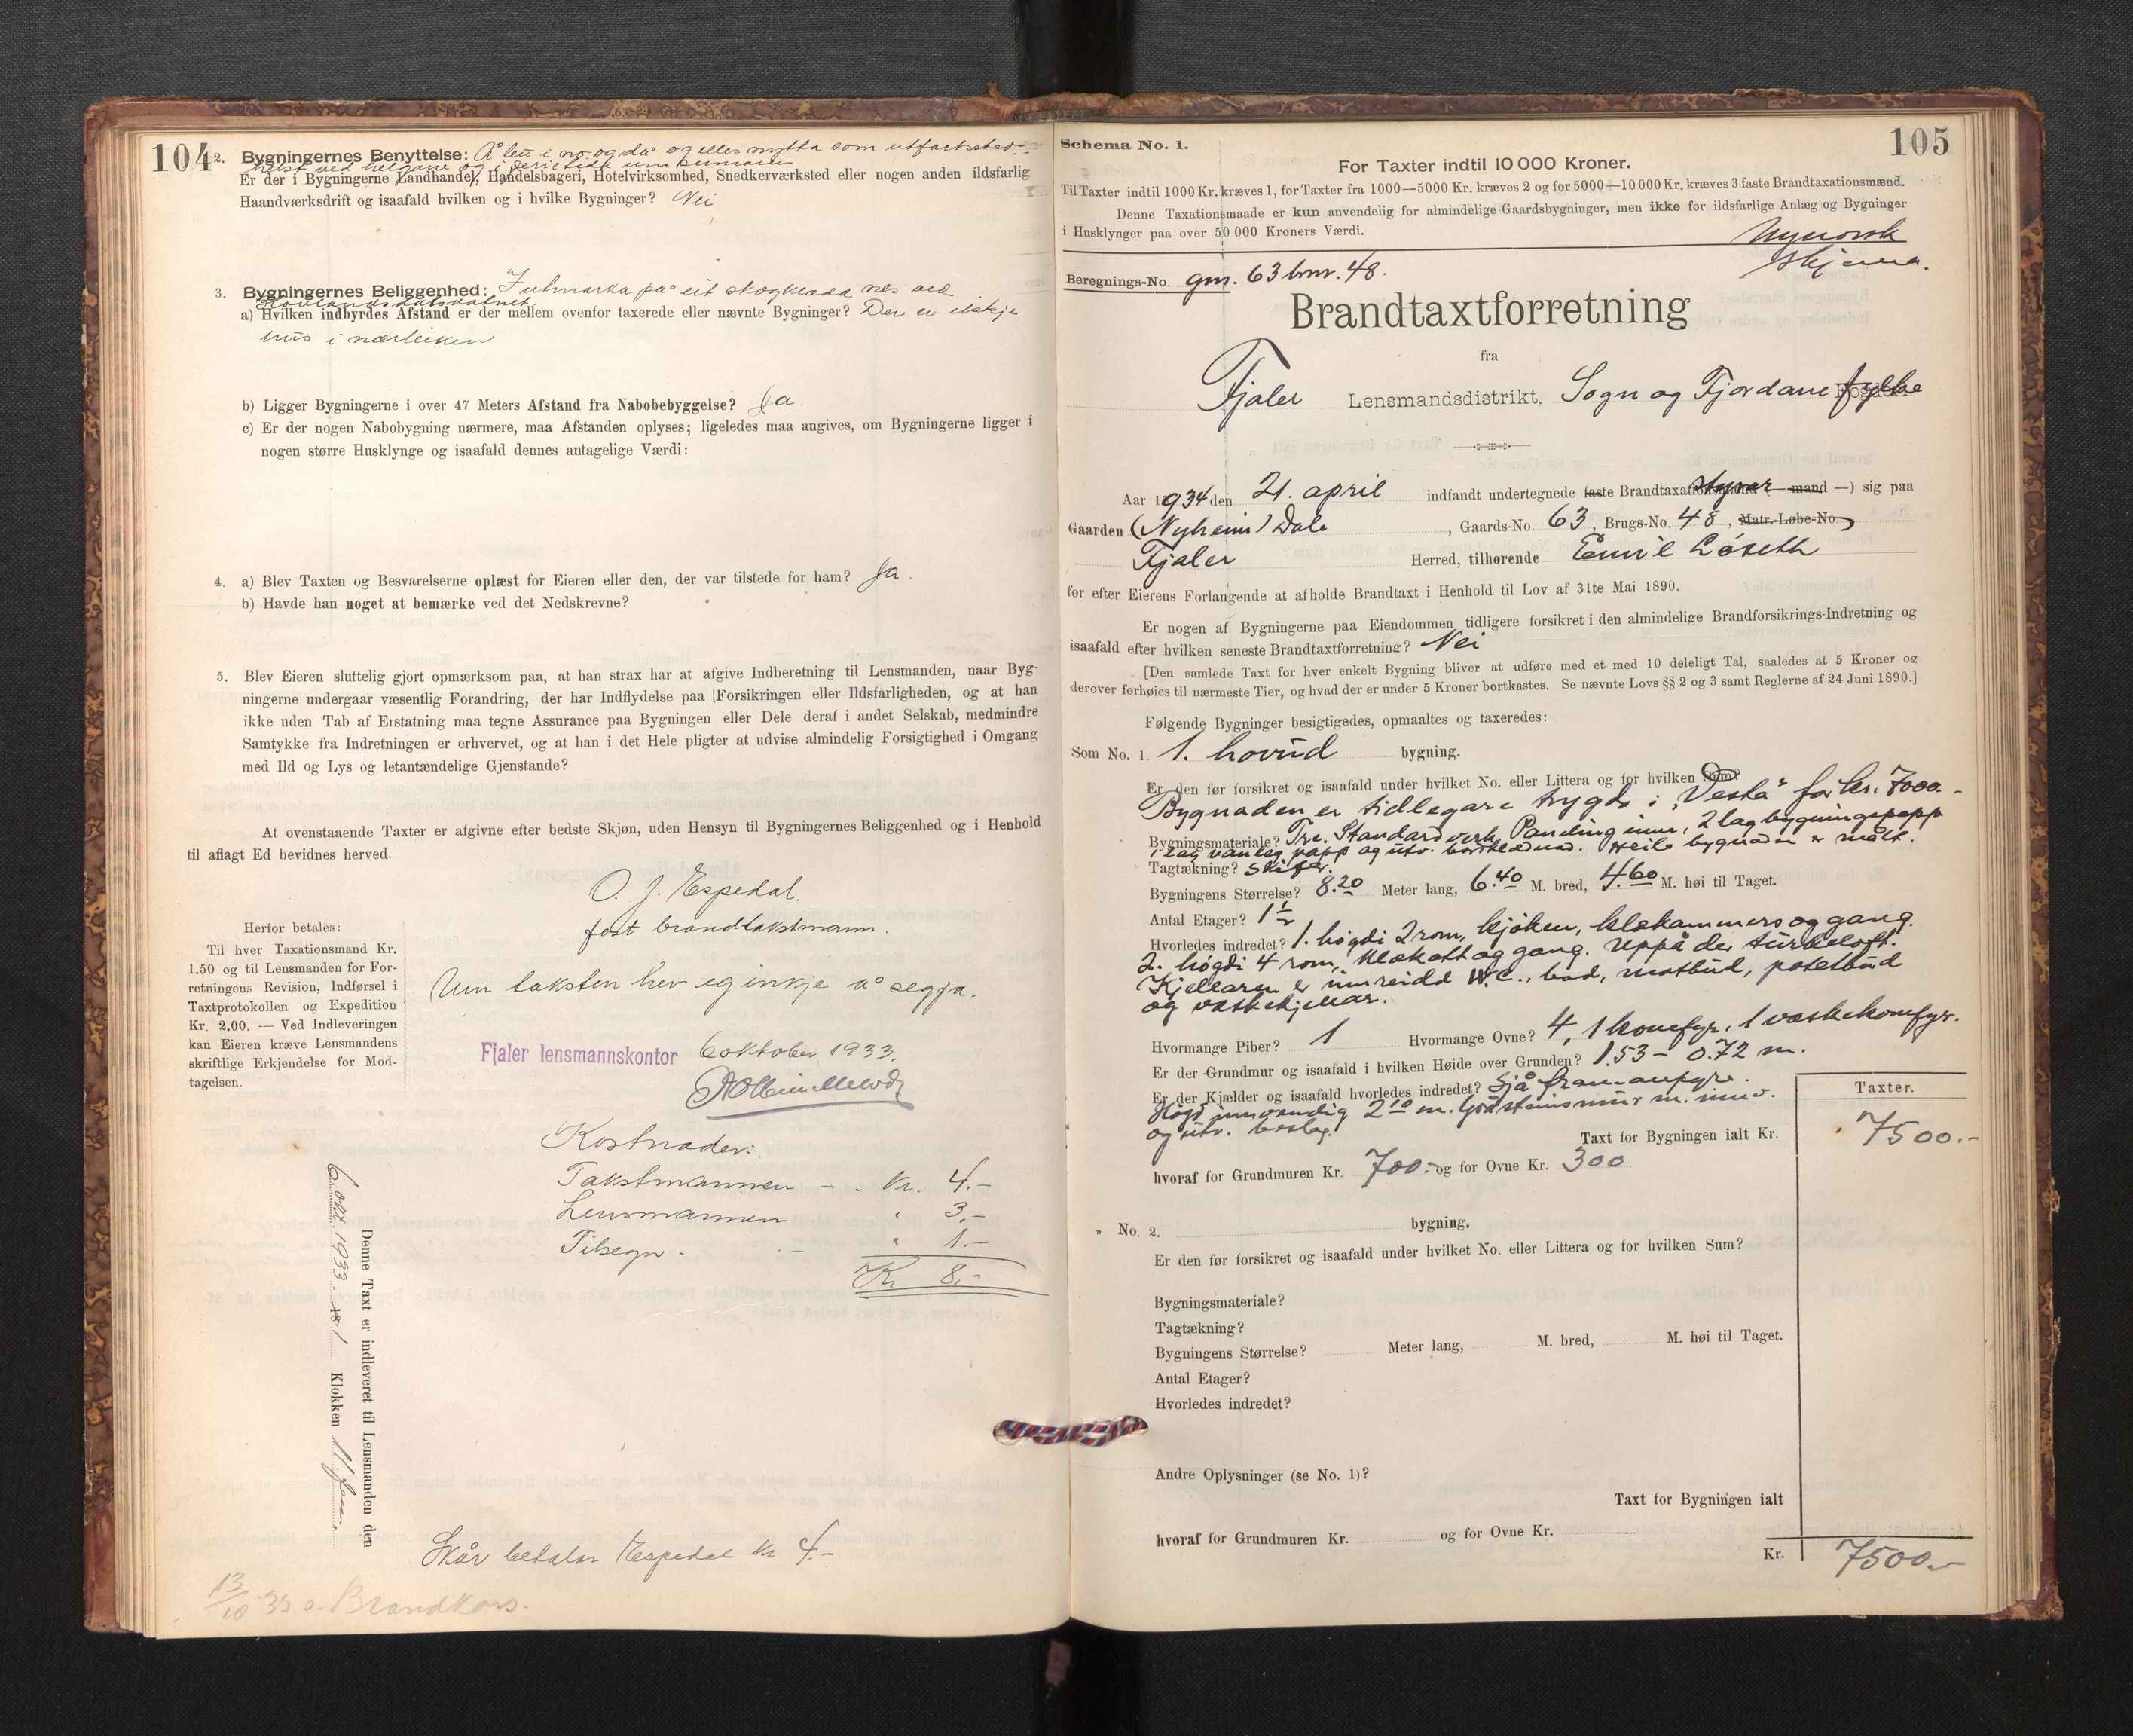 104
2. Bygningernes Benyttelse: Å leu i no og då og elles nytta som utfartsstad
helst ved helgane og i ferietida um sumaren
Er der i Bygningerne Landhandel, Handelsbageri, Hotelvirksomhed, Snedkerværksted eller nogen anden ildsfarlig
Haandværksdrift og isaafald hvilken og i hvilke Bygninger? Nei
3. Bygningernes Beliggenhed: I utmarka på eit skogkledd nes ved
Hovlandsdalsvatnet
a) Hvilken indbyrdes Afstand er der mellem ovenfor taxerede eller nævnte Bygninger? Der er ikskje
hus i nærleiken
b) Ligger Bygningerne i over 47 Meters Afstand fra Nabobebyggelse? Ja.
c) Er der nogen Nabobygning nærmere, maa Afstanden oplyses; ligeledes maa angives, om Bygningerne ligger i
nogen større Husklynge og isaafald dennes antagelige Værdi:
4. a) Blev Taxten og Besvarelserne oplæst for Eieren eller den, der var tilstede for ham? Ja.
b) Havde han noget at bemærke ved det Nedskrevne?
5. Blev Eieren sluttelig gjort opmærksom paa, at han strax har at afgive Indberetning til Lensmanden, naar Byg-
ningerne undergaar væsentlig Forandring, der har Indflydelse paa Forsikringen eller Ildsfarligheden, og at han
ikke uden Tab af Erstatning maa tegne Assurance paa Bygningen eller Dele deraf i andet Selskab, medmindre
Samtykke fra Indretningen er erhvervet, og at han i det Hele pligter at udvise almindelig Forsigtighed i Omgang
med Ild og Lys og letantændelige Gjenstande?
At ovenstaaende Taxter er afgivne efter bedste Skjøn, uden Hensyn til Bygningernes Beliggenhed og i Henhold
til aflagt Ed bevidnes herved.
O. J. Espedal.
fast brandtakstmann.
Herfor betales:
Til hver Taxationsmand Kr.
1.50 og til Lensmanden for For-
retningens Revision, Indførsel i
Taxtprotokollen og Expedition
Kr. 2.00. — Ved Indleveringen
kan Eieren kræve Lensmandens
skriftlige Erkjendelse for Mod-
tagelsen.
Um taksten hev eg inkje å segja.
Fjaler lensmannskontor 6 oktober 1933.
Kostnader:
Takstmannen - . Kr. 4.-
Lensmannen " 3.-
Tilsegn - " 1.-
Kr 8.-
Denne Taxt er indleveret til Lensmanden den
6 okt 1933 18 Klokken 11 fm.
Skår betalar Espedal Kr 4.-
13/10 33 s. Brandkass.
105
Schema No. 1.
For Taxter indtil 10 000 Kroner.
Til Taxter indtil 1000 Kr. kræves 1, for Taxter fra 1000—5000 Kr. kræves 2 og for 5000—10 000 Kr. kræves 3 faste Brandtaxationsmænd.
Denne Taxationsmaade er kun anvendelig for almindelige Gaardsbygninger, men ikke for ildsfarlige Anlæg og Bygninger
i Husklynger paa over 50 000 Kroners Værdi.
Nynorsk
skjema.
Beregnings-No. gnr. 63 bnr. 48.
Brandtaxtforretning
fra
Fjaler Lensmandsdistrikt, Sogn og Fjordane fylke
Aar 1934 den 21. april indfandt undertegnede faste Brandtaxationsstyrar (— mand —) sig paa
Gaarden (Nyheim) Dale, Gaards-No. 63, Brugs-No. 48, Matr.-Løbe-No.
Fjaler Herred, tilhørende Emil Løseth
for efter Eierens Forlangende at afholde Brandtaxt i Henhold til Lov af 31te Mai 1890.
Er nogen af Bygningerne paa Eiendommen tidligere forsikret i den almindelige Brandforsikrings-Indretning og
isaafald efter hvilken seneste Brandtaxtforretning? Nei
[Den samlede Taxt for hver enkelt Bygning bliver at udføre med et med 10 deleligt Tal, saaledes at 5 Kroner og
derover forhøies til nærmeste Tier, og hvad der er under 5 Kroner bortkastes. Se nævnte Lovs §§ 2 og 3 samt Reglerne af 24 Juni 1890.]
Følgende Bygninger besigtigedes, opmaaltes og taxeredes:
Som No. 1. 1. hovud bygning.
Er den før forsikret og isaafald under hvilket No. eller Littera og for hvilken Sum?
Bygnaden er tidlegare trygda i „Vesta" for kr. 7000.-
Bygningsmateriale? Tre. Standardverk. Paneling inne, 2 lag bygningspapp
1 lag vanleg papp og utv. bordklædnad. Heile bygnaden er målt.
Tagtækning? Skifer.
Bygningens Størrelse? 8.20 Meter lang, 6.40 M. bred, 4.60 M. høi til Taget.
Antal Etager? 1 1/2
Hvorledes indredet? 1. høgdi 2 rom, kjøken, klekammers og gang.
2. høgdi 4 rom, klekott og gang. Uppå der turkeloft.
Kjellaren er innreidd W.C., bad, matbud, potetbud
og vaskekjellar.
Hvormange Piber? 1 Hvormange Ovne? 4, 1 komfyr, 1 vaskekomfyr.
Er der Grundmur og isaafald i hvilken Høide over Grunden? 1.53 - 0.72 m.
Er der Kjælder og isaafald hvorledes indredet? Sjå framanfyre.
Høgd innvendig 2.10 m. Gråsteinsmur m. innv.
og utv. beslag.
Taxter.
Taxt for Bygningen ialt Kr. 7500.-
hvoraf for Grundmuren Kr. 700.- og for Ovne Kr. 300
" No. 2. bygning.
Er den før forsikret og isaafald under hvilket No. eller Littera og for hvilken Sum?
Bygningsmateriale?
Tagtækning?
Bygningens Størrelse? Meter lang, M. bred, M. høi til Taget.
Antal Etager?
Hvorledes indredet?
Andre Oplysninger (se No. 1)?
Taxt for Bygningen ialt
hvoraf for Grundmuren Kr. og for Ovne Kr.
Kr. 7500.-